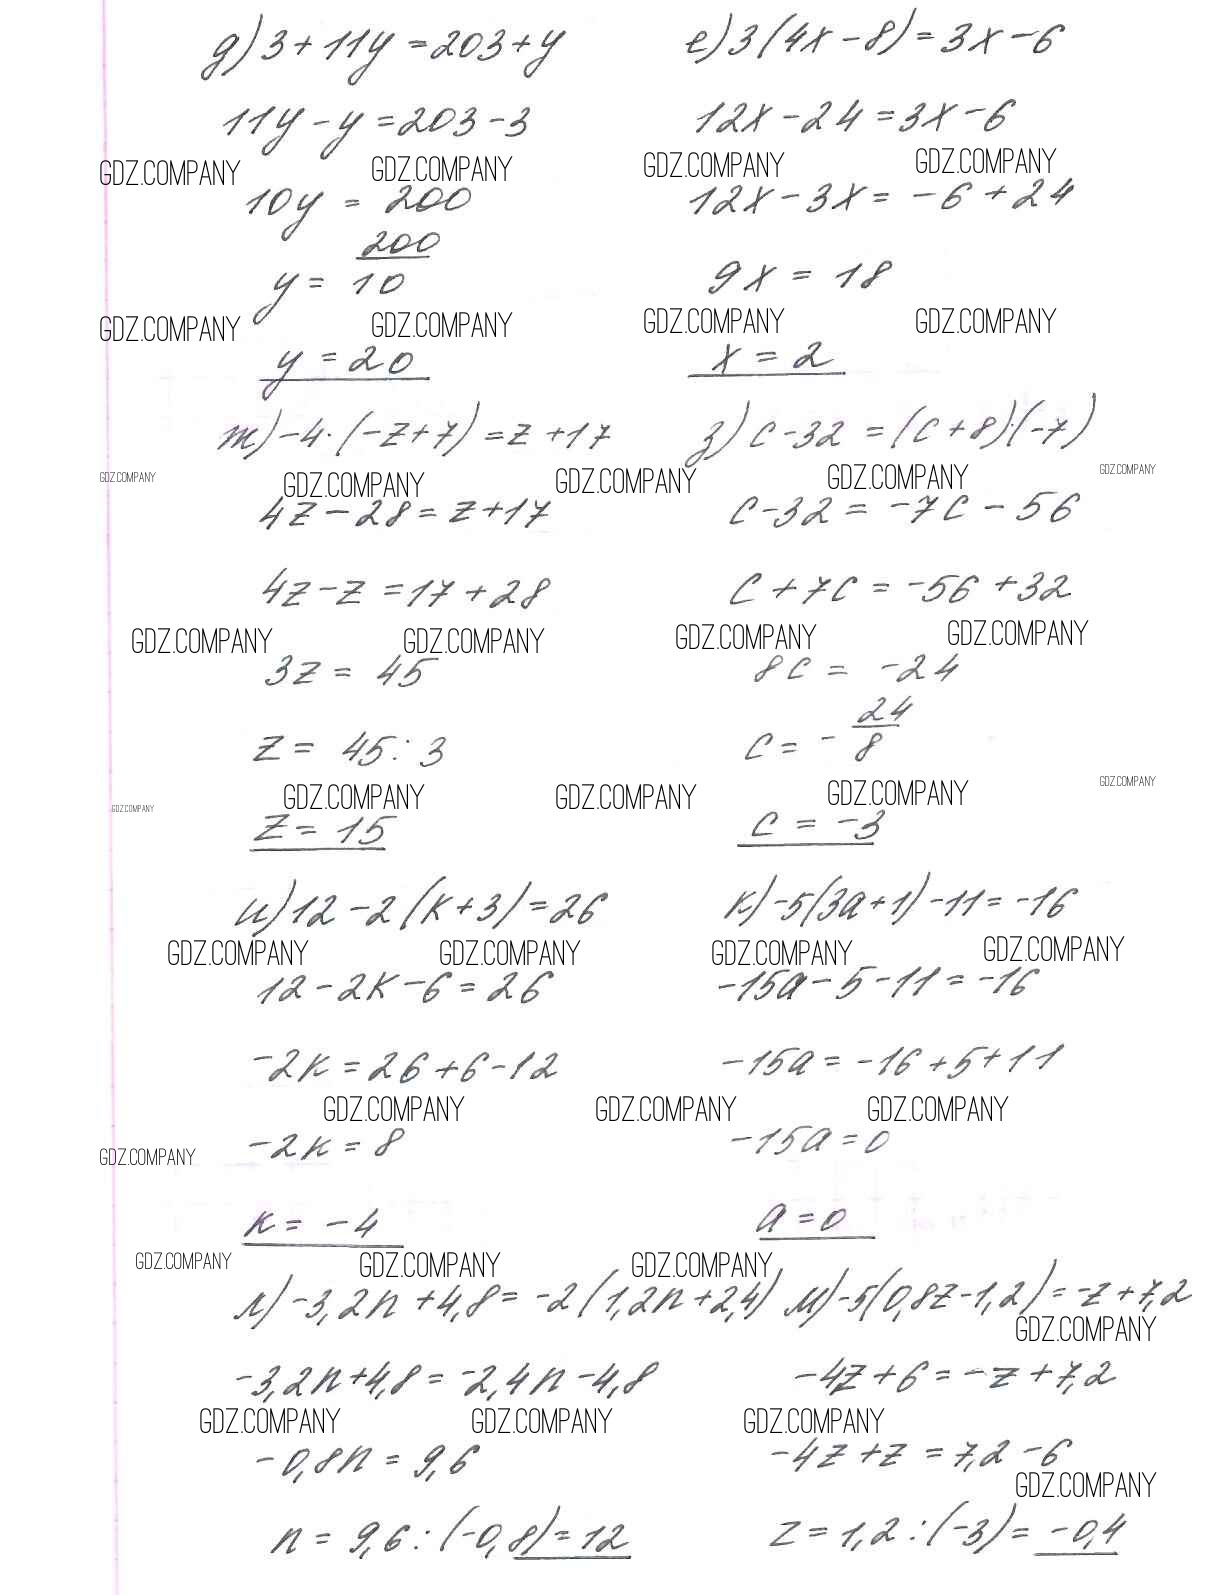 д) 3 + 11y = 203 + y
11y - y = 203 - 3
GDZ.COMPANY GDZ.COMPANY
10y = 200
y = 200/10
GDZ.COMPANY GDZ.COMPANY
y = 20
е) 3(4x - 8) = 3x - 6
12x - 24 = 3x - 6
GDZ.COMPANY GDZ.COMPANY
12x - 3x = -6 + 24
9x = 18
GDZ.COMPANY GDZ.COMPANY
x = 2
ж) -4·(-z+7) = z + 17
GDZ.COMPANY GDZ.COMPANY GDZ.COMPANY
4z - 28 = z + 17
4z - z = 17 + 28
GDZ.COMPANY GDZ.COMPANY
3z = 45
z = 45 : 3
GDZ.COMPANY GDZ.COMPANY GDZ.COMPANY
z = 15
з) c - 32 = (c + 8)·(-7)
GDZ.COMPANY GDZ.COMPANY
c - 32 = -7c - 56
c + 7c = -56 + 32
GDZ.COMPANY GDZ.COMPANY
8c = -24
c = -24/8
GDZ.COMPANY GDZ.COMPANY
c = -3
и) 12 - 2(к + 3) = 26
GDZ.COMPANY GDZ.COMPANY
12 - 2к - 6 = 26
-2к = 26 + 6 - 12
GDZ.COMPANY
GDZ.COMPANY
-2к = 8
к = -4
к) -5(3a + 1) - 11 = -16
GDZ.COMPANY GDZ.COMPANY
-15a - 5 - 11 = -16
-15a = -16 + 5 + 11
GDZ.COMPANY GDZ.COMPANY
-15a = 0
a = 0
GDZ.COMPANY GDZ.COMPANY GDZ.COMPANY
л) -3,2n + 4,8 = -2(1,2n + 2,4)
-3,2n + 4,8 = -2,4n - 4,8
GDZ.COMPANY GDZ.COMPANY
-0,8n = 9,6
n = 9,6 : (-0,8) = 12
м) -5(0,8z - 1,2) = -z + 7,2
GDZ.COMPANY
-4z + 6 = -z + 7,2
GDZ.COMPANY
-4z + z = 7,2 - 6
GDZ.COMPANY
z = 1,2 : (-3) = -0,4